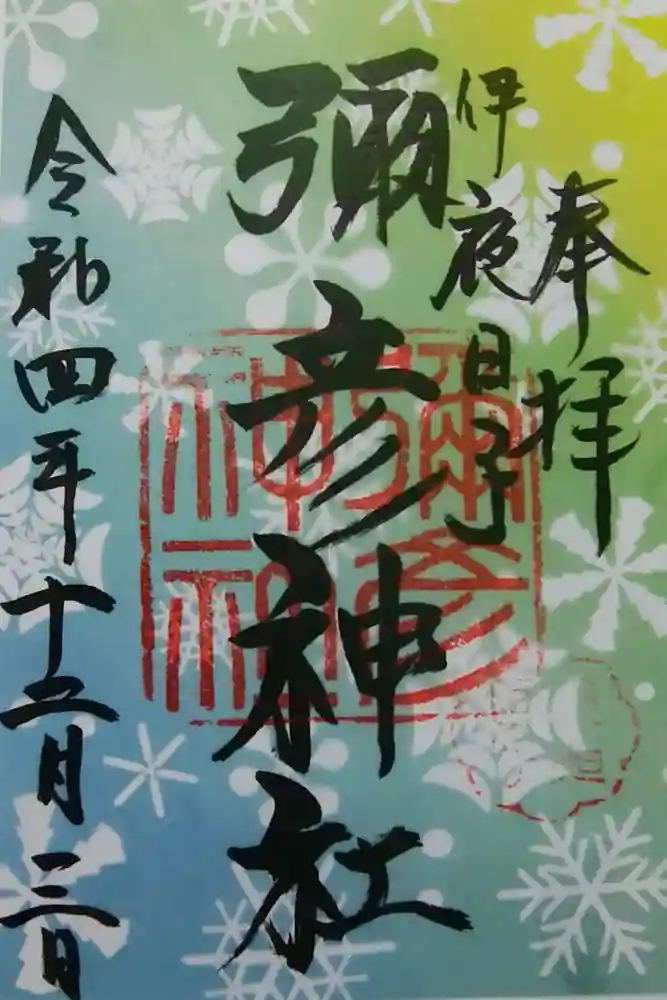 奉拝
伊夜日子
彌彦神社
彌彦
神社
令和四年十二月三日